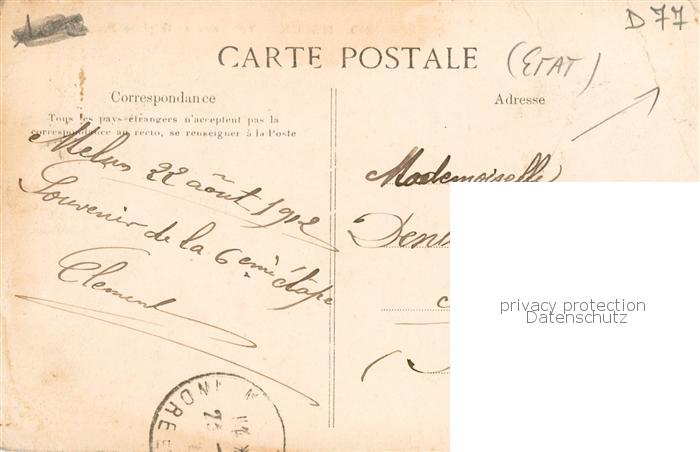 D 77
CARTE POSTALE
(ETAT)
Correspondance
Tous les pays-étrangers n'acceptent pas la
correspondance au recto, se renseigner à la Poste
Melun 22 août 1912
Souvenir de la 6eme étape
Clement
Adresse
Mademoiselle
privacy protection
Datenschutz
INDRE